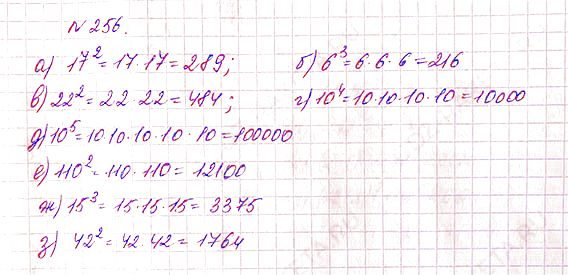 № 256.
а) 17² = 17 · 17 = 289; б) 6³ = 6 · 6 · 6 = 216
в) 22² = 22 · 22 = 484; г) 10⁴ = 10 · 10 · 10 · 10 = 10000
д) 10⁵ = 10 · 10 · 10 · 10 · 10 = 100000
е) 110² = 110 · 110 = 12100
ж) 15³ = 15 · 15 · 15 = 3375
з) 42² = 42 · 42 = 1764